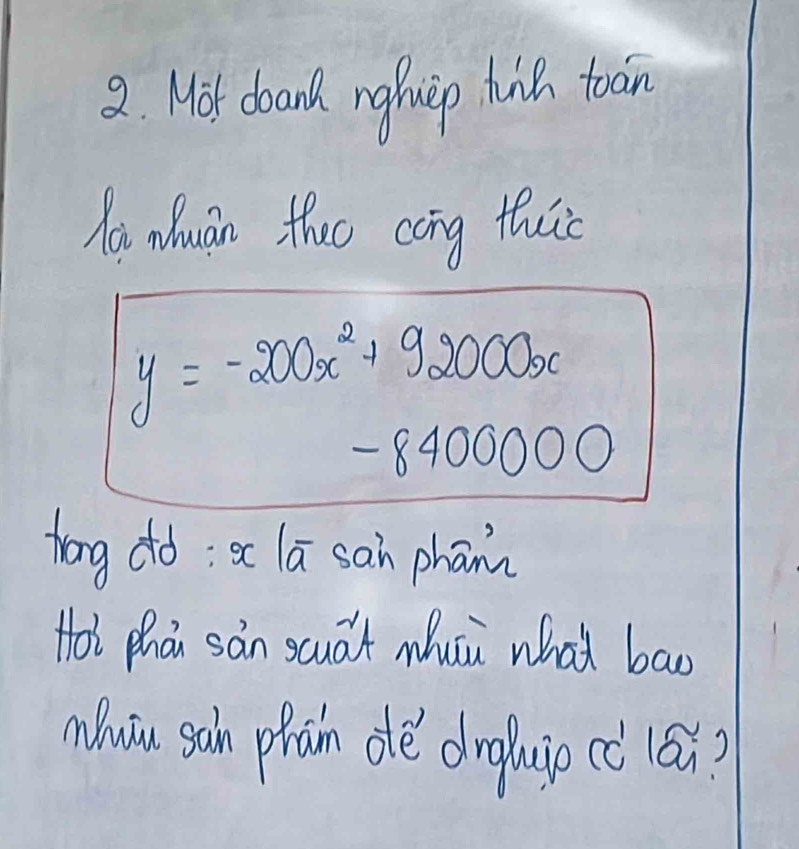 2. Một doanh nghiệp tính toán
lợi nhuận theo công thức
y = -200x² + 92000x
-8400000
trong đó : x là sản phẩm
Hỏi phải sản xuất nhiều nhất bao
nhiêu sản phẩm để dnghiệp có lãi?